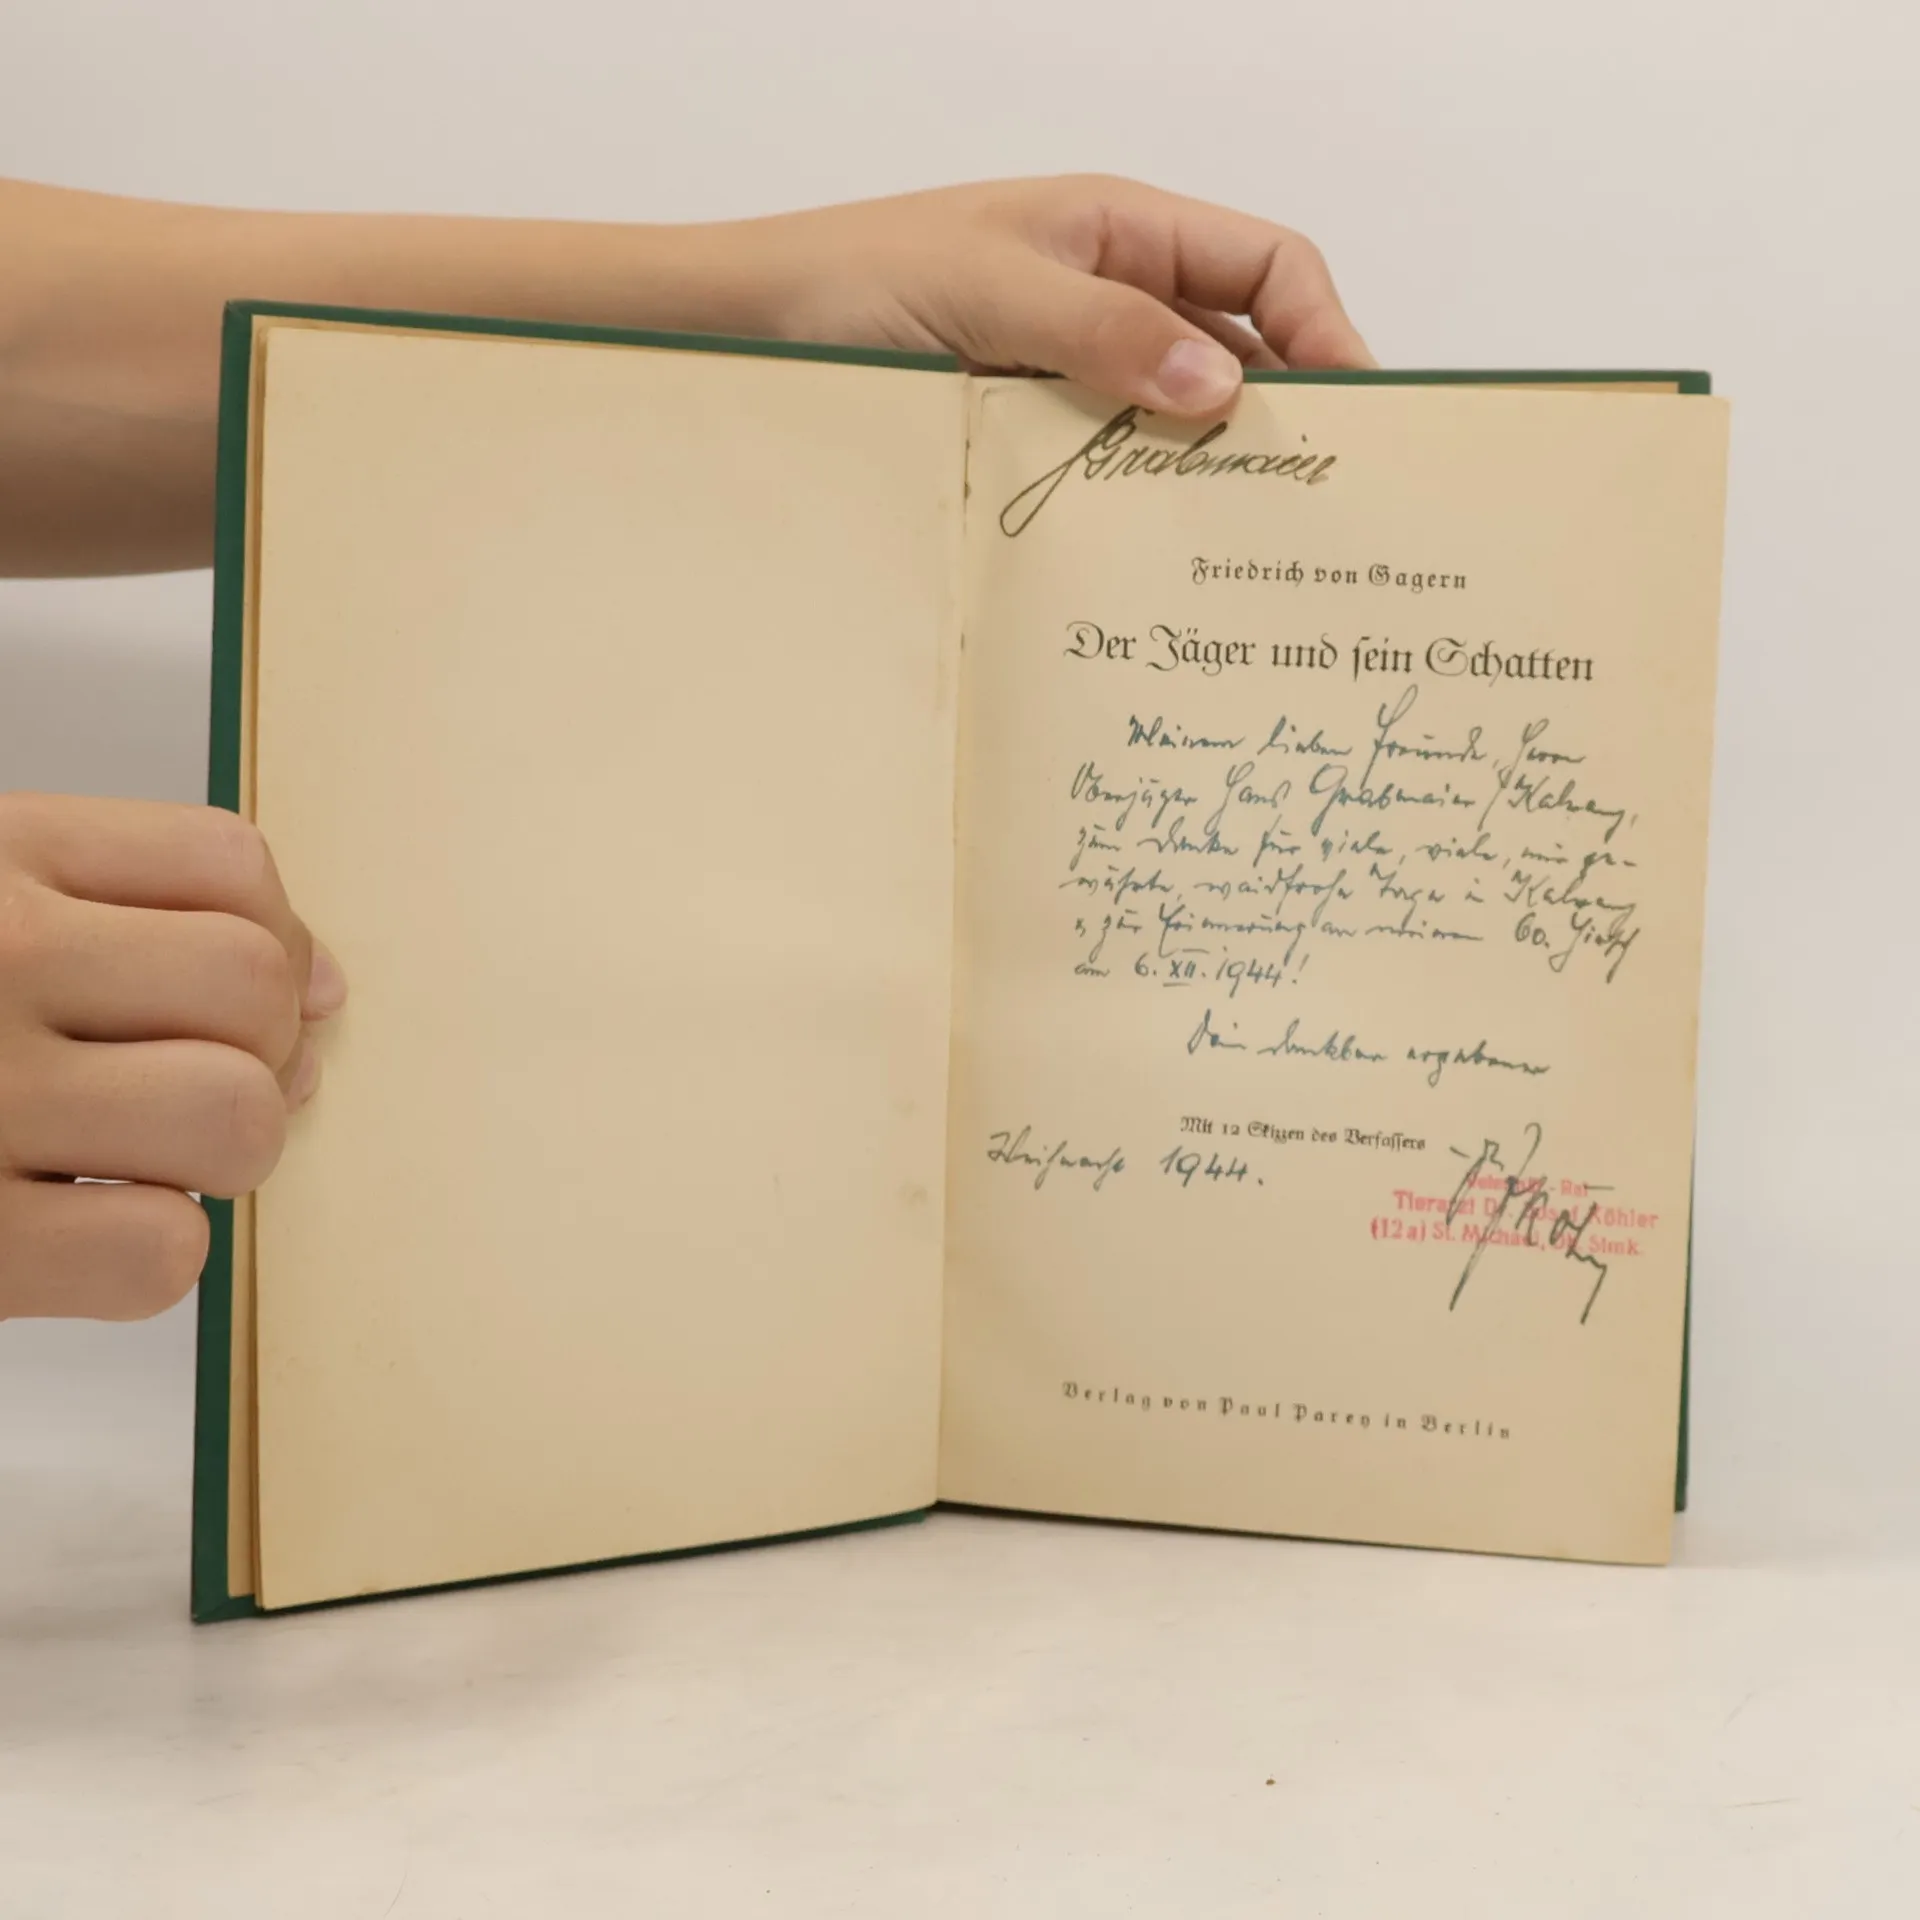 Grabmaier
Friedrich von Gagern
Der Jäger und sein Schatten
Meinem lieben Freunde, Herrn
Oberjäger Hans Grabmaier / Kalwang,
zum Danke für viele, viele, mir ge-
währte, waidfrohe Tage in Kalwang
u. zur Erinnerung an meinen 60. Hirsch
am 6. XII. 1944!
Dein dankbar ergebener
Mit 12 Skizzen des Verfassers
Weihnacht 1944.
Veterinär-Rat
Tierarzt Dr. Josef Köhler
(12a) St. Michael, Ob. Stmk.
Verlag von Paul Parey in Berlin